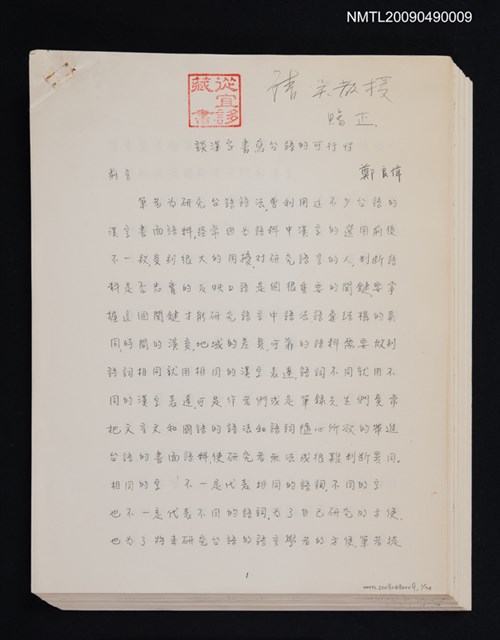 NMTL20090490009
從宜診
藏書
請宋教授
賜正
談漢字書寫台語的可行性
前言
鄭良偉
筆者為研究台語語法,曾利用過不少台語的
漢字書面語料,經常因為語料中漢字的選用前後
不一致,受到很大的困擾,對研究語言的人,判斷語
料是否忠實的反映口語是個很重要的關鍵,要掌
握這個關鍵才能研究語言中語法語音結構的異
同,時間的演變,地域的差異,可靠的語料需要做到
語詞相同就用相同的漢字表達,語詞不同就用不
同的漢字表達,可是作者們或是筆錄先生們異常
把文言文和國語的語法和語詞隨心所欲的帶進
台語的書面語料,使研究者無法或很難判斷異同.
相同的字 不一定代表相同的語詞,不同的字
也不一定代表不同的語詞,為了自己研究的方便,
也為了將來研究台語的語言學者的方便筆者提
1
NMTL20090490009, 1/34